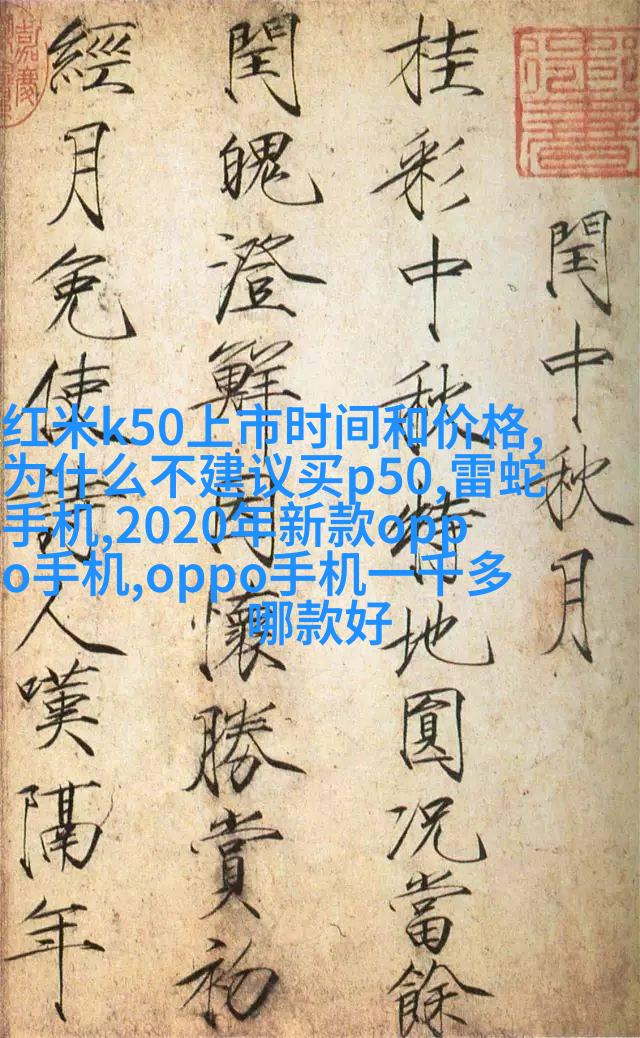 閏中秋月
桂彩中秋特地圓況當餘
閏魄澄鮮因懷勝賞初
經月免使詩人嘆隔年
红米k50上市时间和价格,
为什么不建议买p50,雷蛇
手机,2020年新款opp
o手机,oppo手机一千多
哪款好